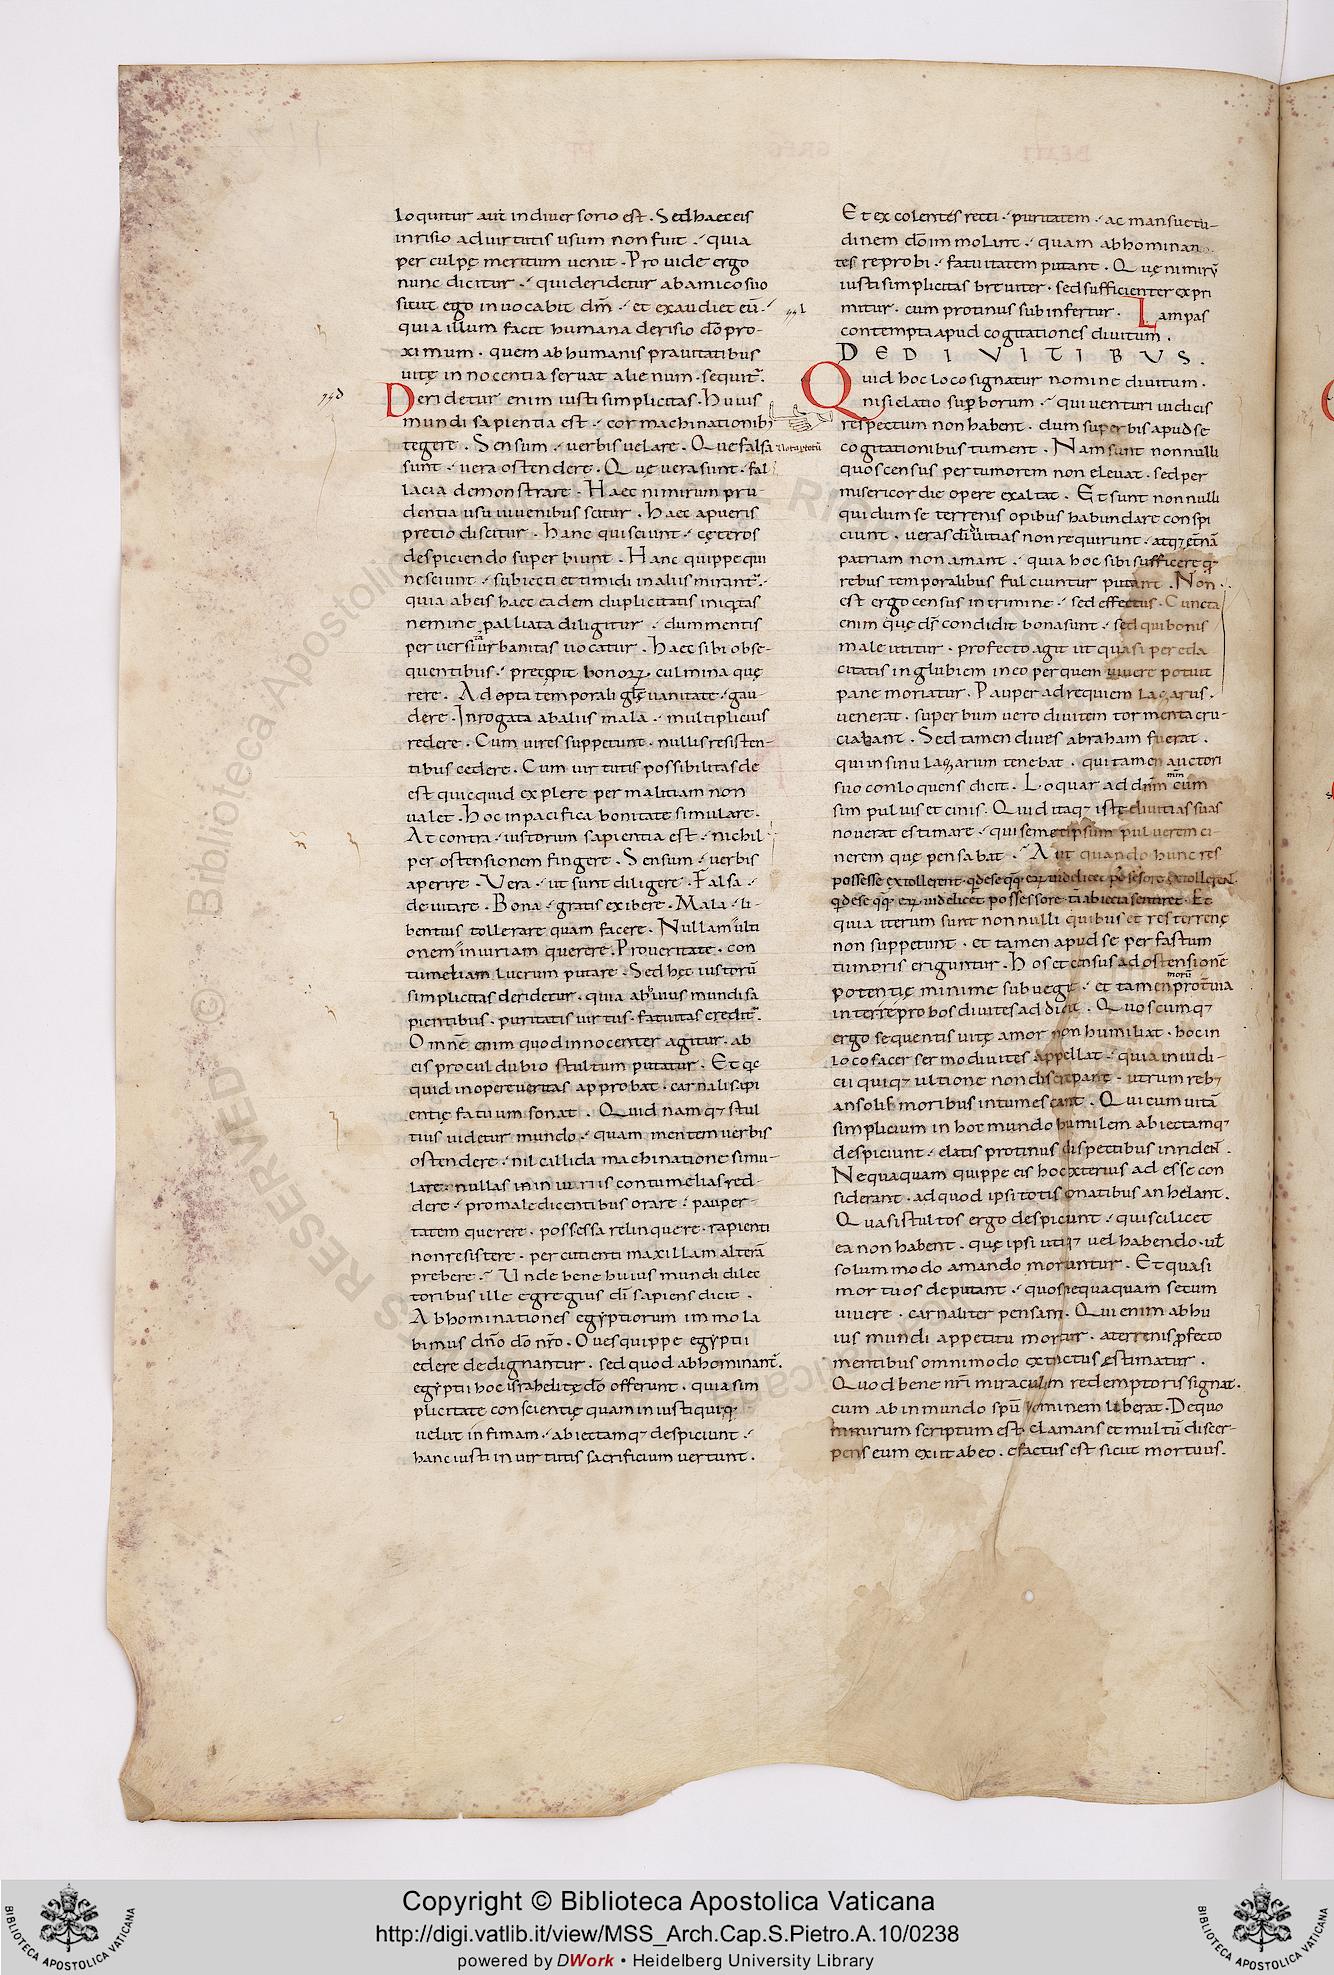 loquitur aut in diversorio est . Sed haec eis
inrisio ad virtutis usum non fuit . quia
per culpę meritum venit . Provide ergo
nunc dicitur . qui deridetur ab amico suo
sicut ego invocabit dm̄ . et exaudiet eū .
quia illum facit humana derisio dō pro-
ximum . quem ab humanis pravitatibus
vitę innocentia servat alienum . sequit̄.
Deridetur enim iusti simplicitas . Huius
mundi sapientia est . cor machinationib;
tegere . Sensum . verbis velare . Quę falsa
sunt . vera ostendere . Quę vera sunt . fal
lacia demonstrare . Haec nimirum pru
dentia usu iuvenibus scitur . Haec a pueris
pretio discitur . hanc qui sciunt . cęteros
despiciendo superbiunt . Hanc quippe qui
nesciunt . subiecti et timidi in aliis mirant̄ .
quia ab eis haec eadem duplicitatis iniq̄tas
nemine palliata diligitur . dum mentis
perversitas urbanitas vocatur . Haec sibi obse-
quentibus . pręcepit honorꝝ culmina quę
rere . Adopta temporali glę vanitate . gau-
dere . Inrogata ab aliis mala . multiplicius
redere . Cum vires suppetunt . nullis resisten-
tibus cedere . Cum virtutis possibilitas de
est quicquid explere per malitiam non
valet . hoc in pacifica bonitate simulare .
At contra . iustorum sapientia est . nichil
per ostensionem fingere . Sensum . verbis
aperire . Vera . ut sunt diligere . Falsa .
devitare . Bona . gratis exibere . Mala . li-
bentius tollerare quam facere . Nullam ulti
onem iniuriam querere . Pro veritate . con
tumeliam lucrum putare . Sed hęc iustorū
simplicitas deridetur . quia ab huius mundi sa
pientibus . puritatis virtus . fatuitas credit̄.
Omnē enim quod innocenter agitur . ab
eis procul dubio stultum putatur . Et qc
quid in opere veritas approbat . carnali sapi
entię fatuum sonat . Quid namq; stul
tius videtur mundo . quam mentem verbis
ostendere . nil callida machinatione simu-
lare . nullas in iniuriis contumelias red-
dere . pro maledicentibus orare . pauper-
tatem querere . possessa relinquere . rapienti
non resistere . percutienti maxillam alterā
prebere . Unde bene huius mundi dilec
toribus ille egregius di sapiens dicit .
Abhominationes egyptiorum immola
bimus dn̄o dō nr̄o . Oves quippe egyptii
edere dedignantur . sed quod abhominant̄.
egyptii hoc israhelitę dō offerunt . quia sim
plicitate conscientię quam iniusti quiq;
velut infimam . abiectamq; despiciunt .
hanc iusti in virtutis sacrificium vertunt .
Et excolentes recti . puritatem . ac mansuetu-
dinem dō immolant . quam abhominan
tes reprobi . fatuitatem putant . Quę nimirū
iusti simplicitas breviter . sed sufficienter expri
mitur . cum protinus subinfertur . Lampas
contempta apud cogitationes divitum .
DE DIVITIBVS .
Quid hoc loco signatur nomine divitum .
nisi elatio superborum . qui venturi iudicis
respectum non habent . dum superbis apud se
cogitationibus tument . Nam sunt nonnulli
quos census per tumorem non elevat . sed per
misericordie opere exaltat . Et sunt nonnulli
qui dum se terrenis opibus habundare conspi
ciunt . veras divitias non requirunt . atq; ętnā
patriam non amant . quia hoc sibi sufficere q̄
rebus temporalibus fulciuntur putant . Non
est ergo census in crimine . sed effectus . Cuncta
enim quę ds condidit bona sunt . sed qui bonis
male utitur . profecto agit ut quasi per eda
citatis ingluviem in eo per quem vivere potuit
pane moriatur . Pauper ad requiem lazarus .
venerat . superbum vero divitem tormenta cru-
ciabant . Sed tamen dives abraham fuerat .
qui in sinu lazarum tenebat . qui tamen auctori
suo conloquens dicit . Loquar ad dn̄m cum
sim pulvis et cinis . Quid itaq; iste divitias suas
noverat estimare . qui semetipsum pulverem ci-
nerem quę pensabat . Aut quando hunc res
possesse extollerent
Et
quia iterum sunt nonnulli quibus et res terrenę
non suppetunt . et tamen apud se per fastum
tumoris eriguntur . Hos et census ad ostensionē
potentię minime subvegit . et tamen morū protervia
inter reprobos divites addicit . Quoscumq;
ergo sequentis vitę amor non humiliat . hoc in
loco sacer sermo divites appellat . quia in iudi-
cii quiq; ultione non discrepant . utrum reb;
an solis moribus intumescant . Qui cum vitā
simplicium in hoc mundo humilem abiectamq;
despiciunt . elatis protinus dispectibus inriden̄ .
Nequaquam quippe eis hoc exterius adesse con
siderant . ad quod ipsi totis onatibus anhelant .
Quasi stultos ergo despiciunt . qui scilicet
ea non habent . quę ipsi utiq; vel habendo . ul̄
solummodo amando moriuntur . Et quasi
mortuos deputant . quos nequaquam secum
vivere . carnaliter pensant . Qui enim ab hu
ius mundi appetitu moritur . a terrenis ꝓfecto
mentibus omnimodo extinctus ęstimatur .
Quod bene nr̄i miraculum redemptoris signat .
cum ab inmundo spū hominem liberat . De quo
nimirum scriptum est . clamans et multū discer-
pens eum exiit ab eo . efactus est sicut mortuus .
Copyright © Biblioteca Apostolica Vaticana
http://digi.vatlib.it/view/MSS_Arch.Cap.S.Pietro.A.10/0238
powered by DWork • Heidelberg University Library
BIBLIOTECA APOSTOLICA VATICANA
BIBLIOTECA APOSTOLICA VATICANA